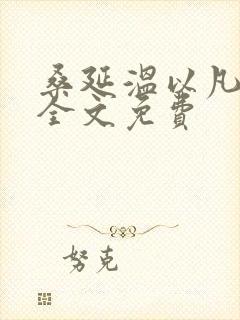 桑延温以凡
全文免费
努克